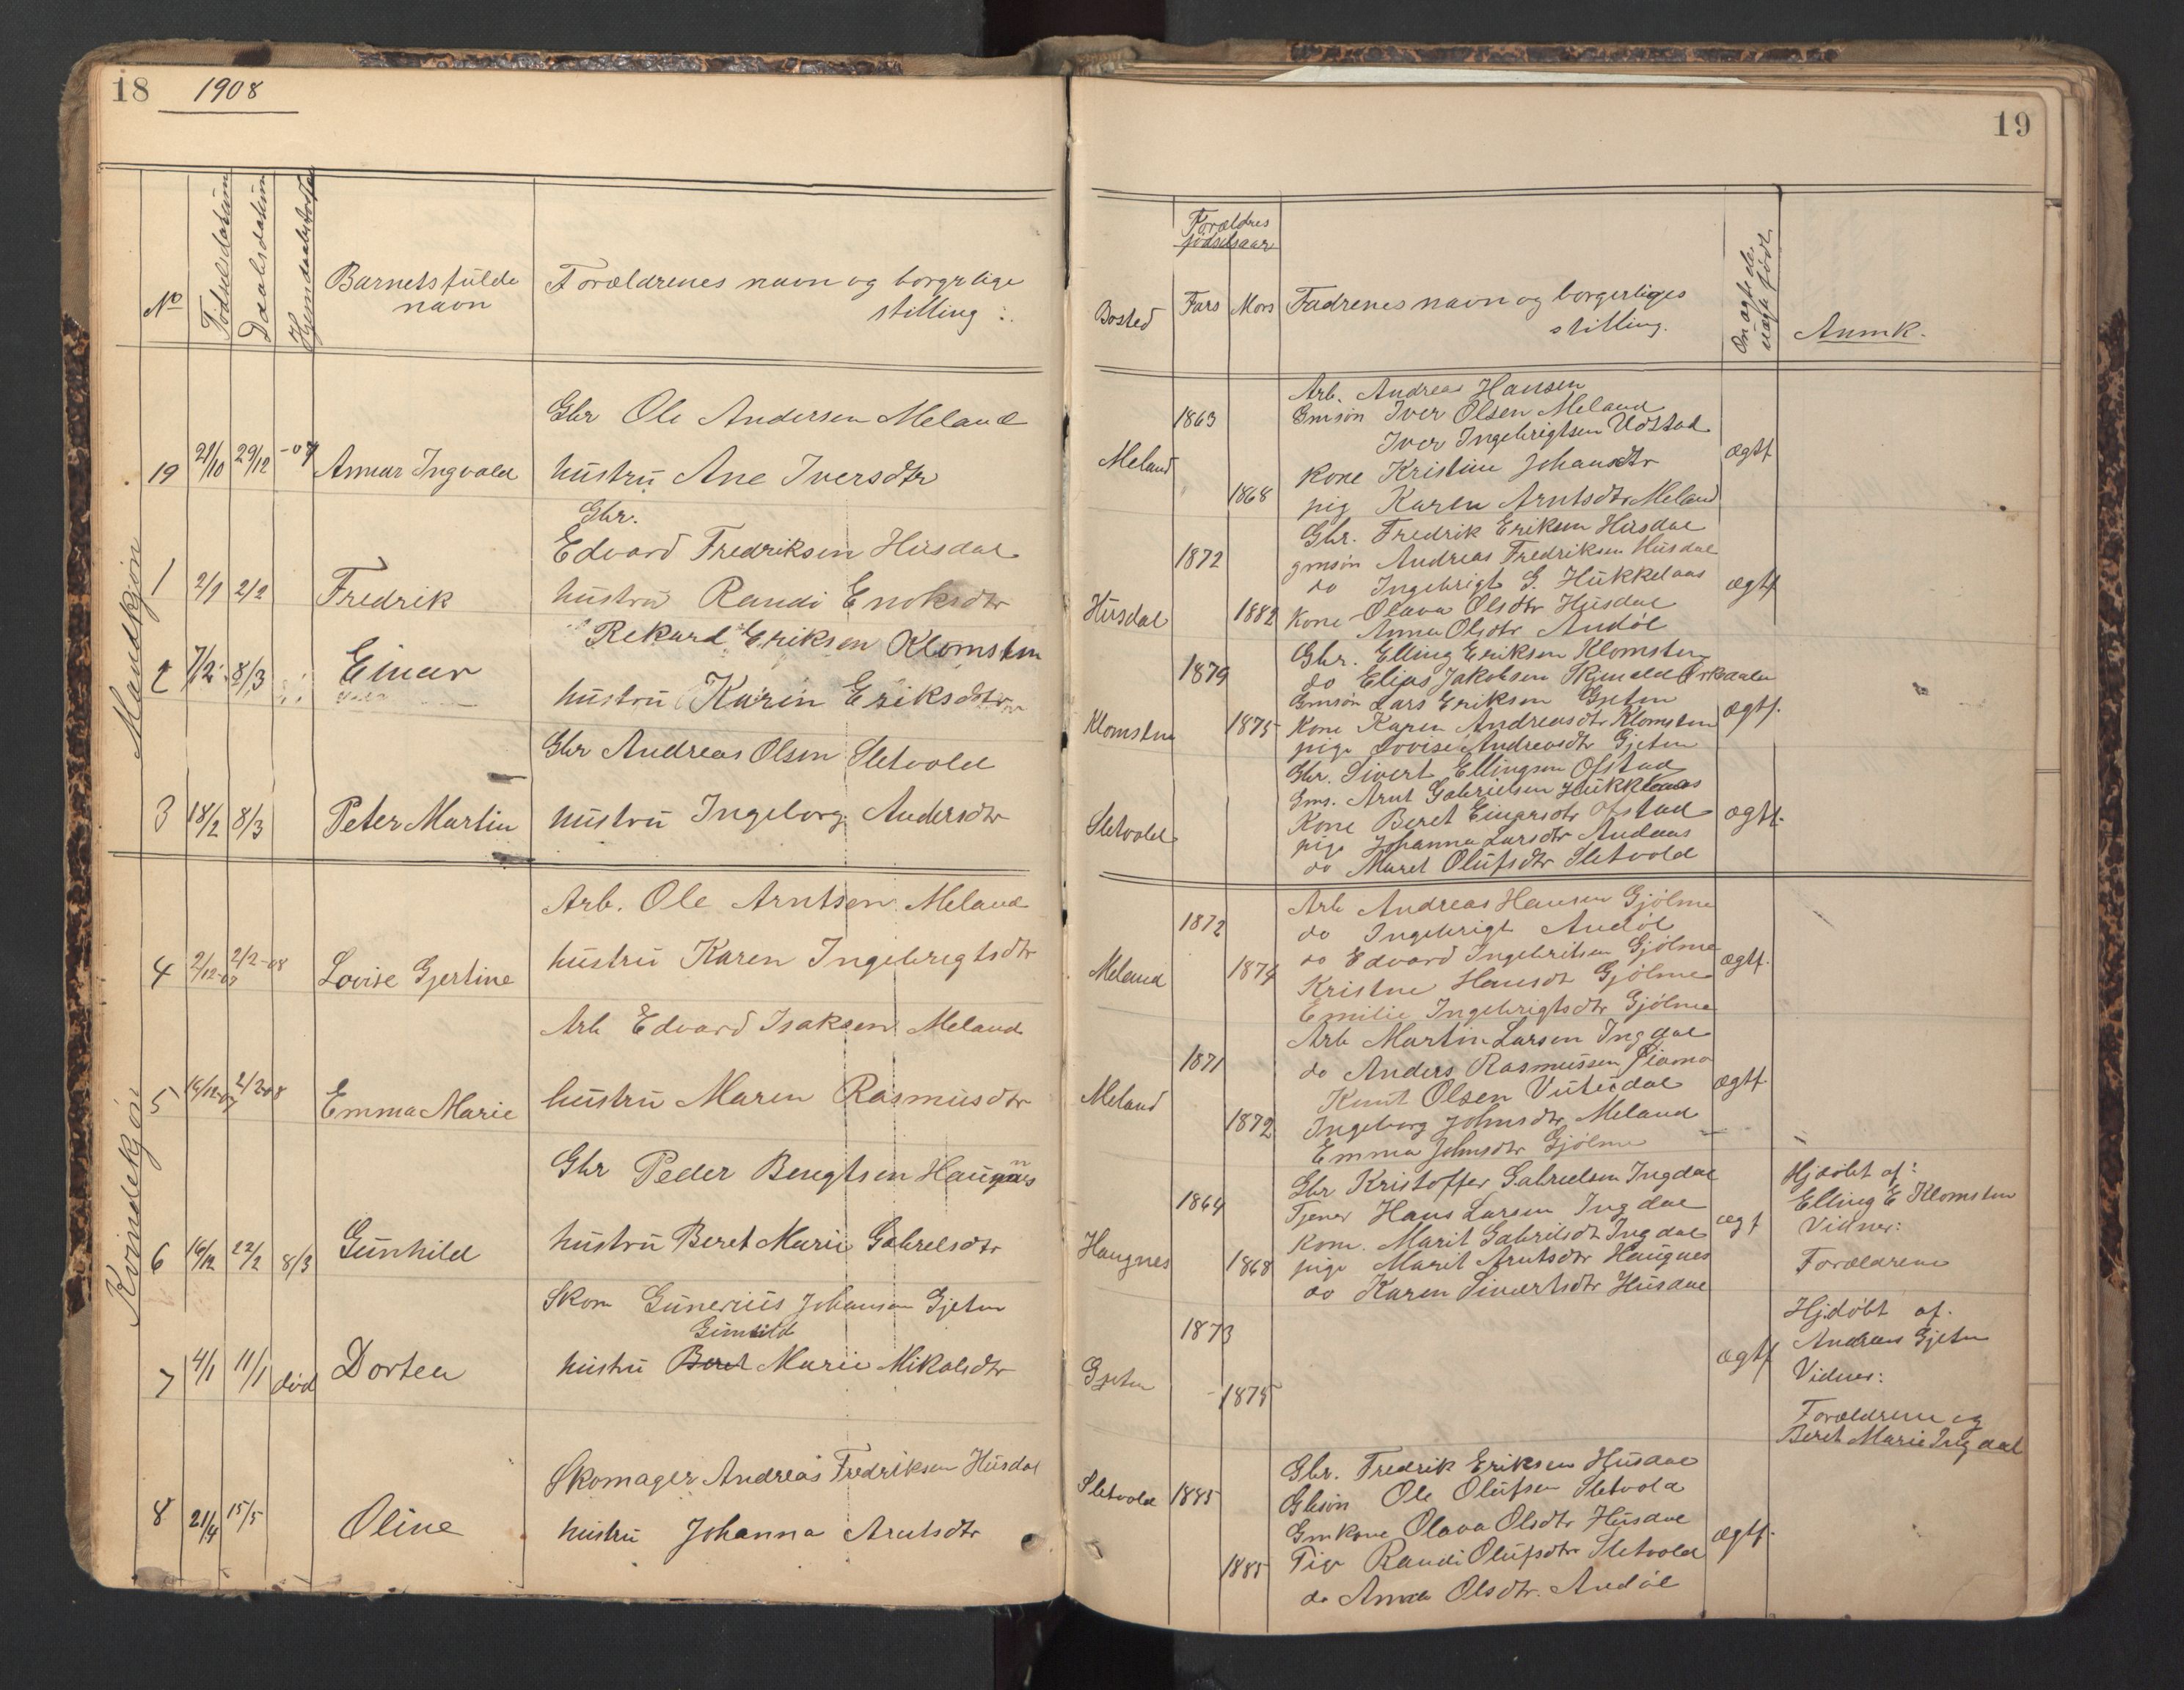 18 1908
No
Fødselsdatum
Daabsdatum
Barnets fulde
navn
Forældrenes navn og borgrlige
stilling :
Mandkjøn
Gbr Ole Andersen Meland
19 21/10 29/12 -07 Annar Ingvald hustru Ane Iversdtr
Gbr.
Edvard Fredriksen Husdal
1 2/1 2/2 Fredrik hustru Randi Enoksdtr
Rekard Eriksen Klomsten
2 7/2 8/3 Einar
hustru Karen Eriksdtr
Gbr Andreas Olsen Sletvold
3 18/2 8/3 Peter Martin hustru Ingeborg Andersdtr
Kvindekjøn
Arb. Ole Arntsen Meland
4 2/12-07 2/2-08 Lovise Gjertine hustru Karen Ingebrigtsdtr
Arb Edvard Isaksen Meland
5 16/12-07 2/2-08 Emma Marie hustru Maren Rasmusdtr
Gbr Peder Bengtsen Haugnes
6 16/12 22/2 8/3 Gunhild hustru Beret Marie Gabrelsdtr
Skom Gunerius Johansen Gjeten
Gunhild
7 4/1 11/1 død Dortea hustru Beret Marie Mikalsdtr
Skomager Andreas Fredriksen Husdal
8 21/4 15/5 Oline hustru Johanna Arntsdtr
19
Forældres
fødselsaar
Bosted Fars Mors Fadrenes navn og borgerliges
stilling.
Om ægte el.
uægte født.
Anmk.
Arb. Andreas Hansen
1863 Gmsøn Iver Olsen Meland
Iver Ingebrigtsen Udstad
Meland Kone Kristine Johansdtr ægtf
1868 pig Karen Arntsdtr Meland
Gbr. Fredrik Eriksen Husdal
1872 gmsøn Andreas Fredriksen Husdal
do Ingebrigt G. Hukkelaas ægtf
Husdal 1882 Kone Olava Olsdtr Husdal
Anna Olsdtr Andøl
Gbr. Elling Eriksen Klomsten
1879 do Elias Jakobsen Orkedalen
Gmsøn Lars Eriksen Gjeten ægtf.
Klomsten 1875 Kone Karen Andreasdtr Klomsten
pige Lovise Andreasdtr Gjeten
Gbr. Sivert Ellingsen Ofstad
Gms. Arnt Gabrielsen Hukkelaas
Sletvold Kone Beret Einarsdtr Ofstad ægtf.
pige Johanna Larsdtr Andaas
do Maret Olufsdtr Sletvold
Arb Andreas Hansen Gjølme
1872 do Ingebrigt Andøl
do Edvard Ingebritsen Gjølme ægtf.
Meland 1874 Kristine Hansdt Gjølme
Emilie Ingebrigtsdtr Gjølme
Arb Martin Larsen Ingdal
1871 do Anders Rasmussen
Knut Olsen Vutudal ægtf
Meland 1872 Ingeborg Johnsdtr Meland
Emma Johnsdtr Gjølme
Gbr Kristoffer Gabrielsen Ingdal
1864 Tjener Hans Larsen Ingdal
Kone. Marit Gabrilsdt Ingdal ægt
Haugnes 1868 pige Marit Arntsdtr Haugnes
do Karen Sivertsdtr Husdal
Hjdøbt af:
Elling E Klomsten
Vidner:
Forældrene
1873
Gjeten ægtf
1875
Hjdøbt af.
Andreas Gjeten
Vidner:
Forældrene og
Beret Marie Ingdal
Gbr. Fredrik Eriksen Husdal
Sletvold 1885 Gbsøn Ole Olufsen Sletvold
Gmkone Olava Olsdtr Husdal ægtf.
1885 Pige Randi Olufsdtr Sletvold
do Anna Olsdtr. Andøl